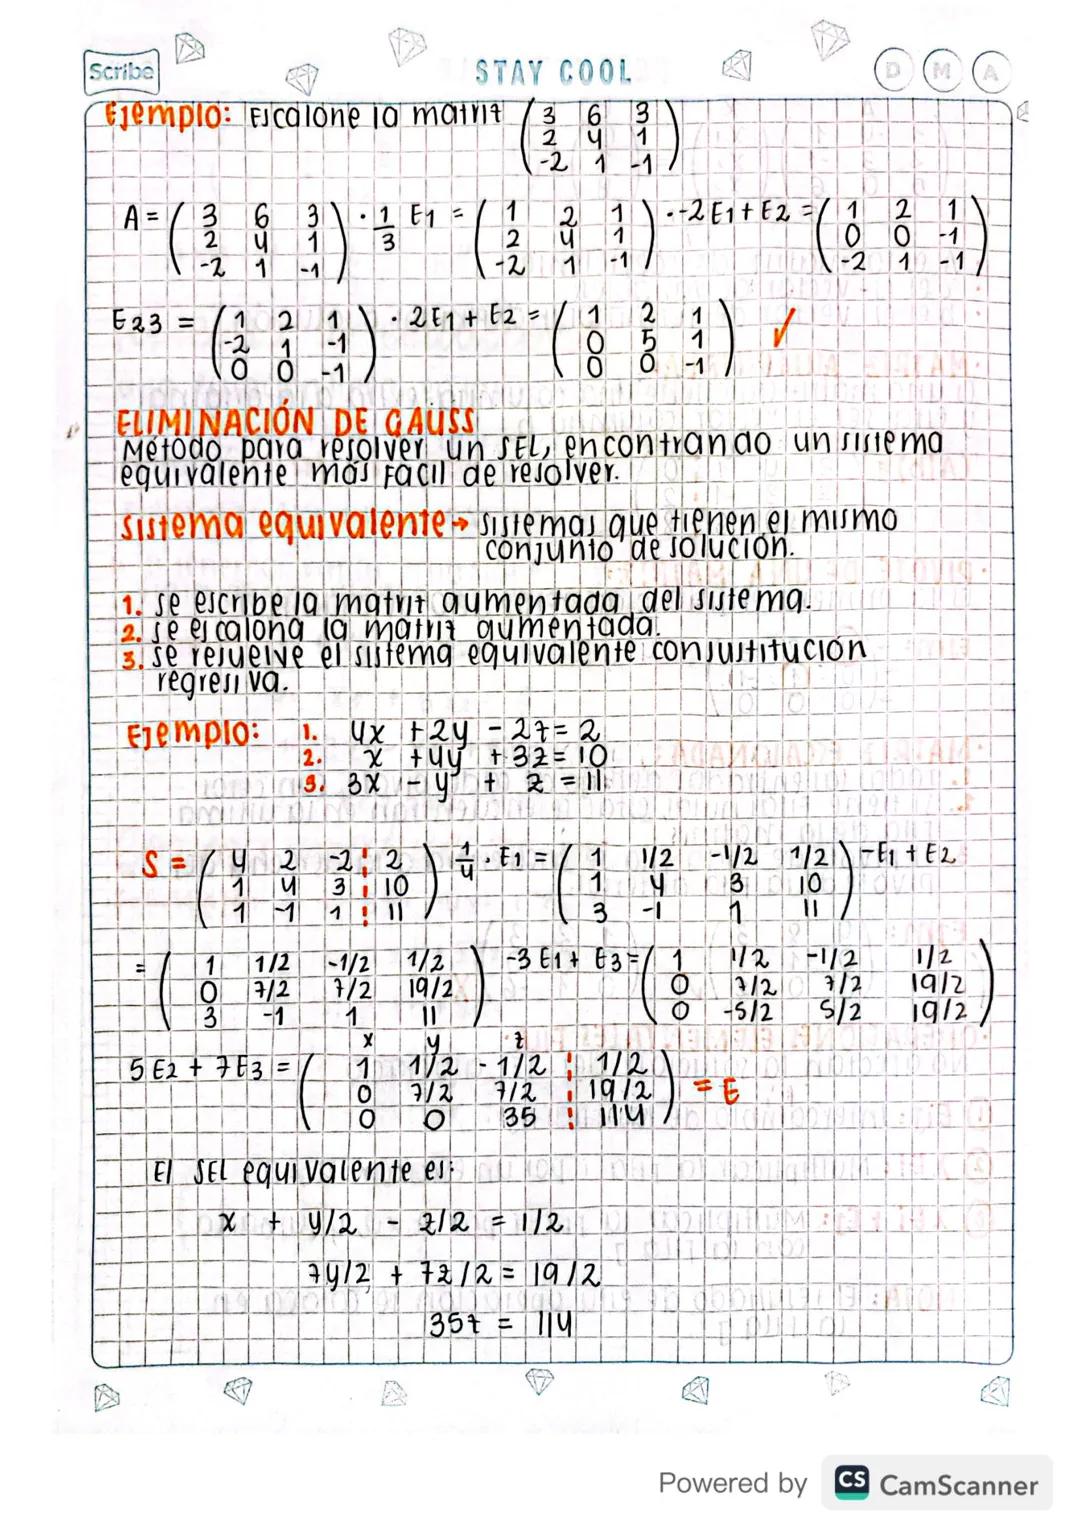 Scribe
STAY COOL
D M A
Ejemplo: Escalone la matriz ( 3 6 3
2 4 1
-2 1 -1 )
A = ( 3 6 3
2 4 1
-2 1 -1 ) · 1/3 E1 = ( 1 2 1
2 4 1
-2 1 -1 ) · -2E1 + E2 = ( 1 2 1
0 0 -1
-2 1 -1 )
E23 = ( 1 2 1
-2 1 -1
0 0 -1 ) · 2E1 + E2 = ( 1 2 1
0 5 1
0 0 -1 ) ✓
ELIMINACIÓN DE GAUSS
Método para resolver un SEL, encontrando un sistema
equivalente más facil de resolver.
Sistema equivalente → sistemas que tienen el mismo
conjunto de solución.
1. se escribe la matriz aumentada del sistema.
2. se escalona la matriz aumentada.
3. se resuelve el sistema equivalente con sustitución
regresiva.
Ejemplo: 1. 4x + 2y - 2z = 2
2. x + 4y + 3z = 10
3. 3x - y + z = 11
S = ( 4 2 -2 ¦ 2
1 4 3 ¦ 10
1 -1 1 ¦ 11 ) 1/4 · E1 = ( 1 1/2 -1/2 1/2
1 4 3 10
3 -1 1 11 ) -E1 + E2
= ( 1 1/2 -1/2 1/2
0 7/2 7/2 19/2
3 -1 1 11 ) -3E1 + E3 = ( 1 1/2 -1/2 1/2
0 7/2 7/2 19/2
0 -5/2 5/2 19/2 )
x y z
5E2 + 7E3 = ( 1 1/2 -1/2 ¦ 1/2
0 7/2 7/2 ¦ 19/2
0 0 35 ¦ 114 ) = E
El SEL equivalente es:
x + y/2 - z/2 = 1/2
7y/2 + 7z/2 = 19/2
35z = 114
Powered by CS CamScanner